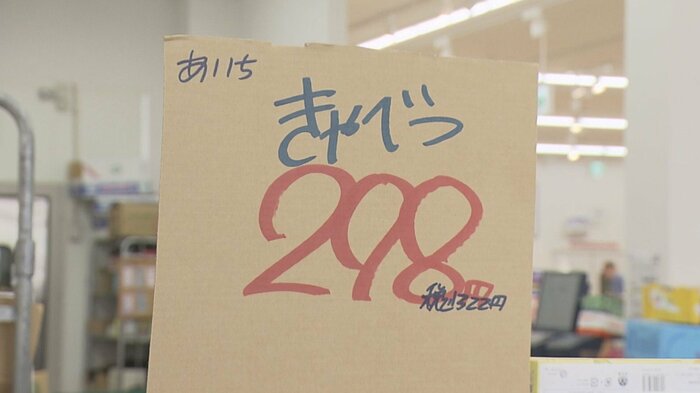 あいち
きゃべつ
298円
税込322円